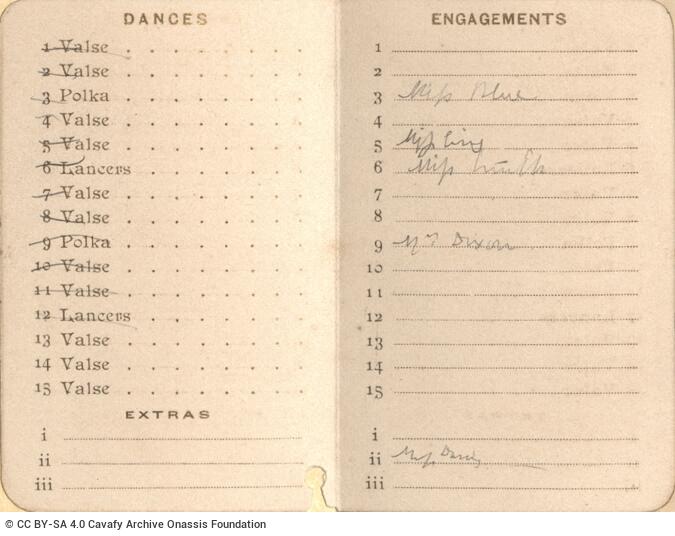 DANCES
1 Valse
2 Valse
3 Polka
4 Valse
5 Valse
6 Lancers
7 Valse
8 Valse
9 Polka
10 Valse
11 Valse
12 Lancers
13 Valse
14 Valse
15 Valse
EXTRAS
i
ii
iii
ENGAGEMENTS
1
2
3 Miss
4
5 Miss
6 Miss
7
8
9 Mrs Dixon
10
11
12
13
14
15
i
ii Miss Davis
iii
© CC BY-SA 4.0 Cavafy Archive Onassis Foundation